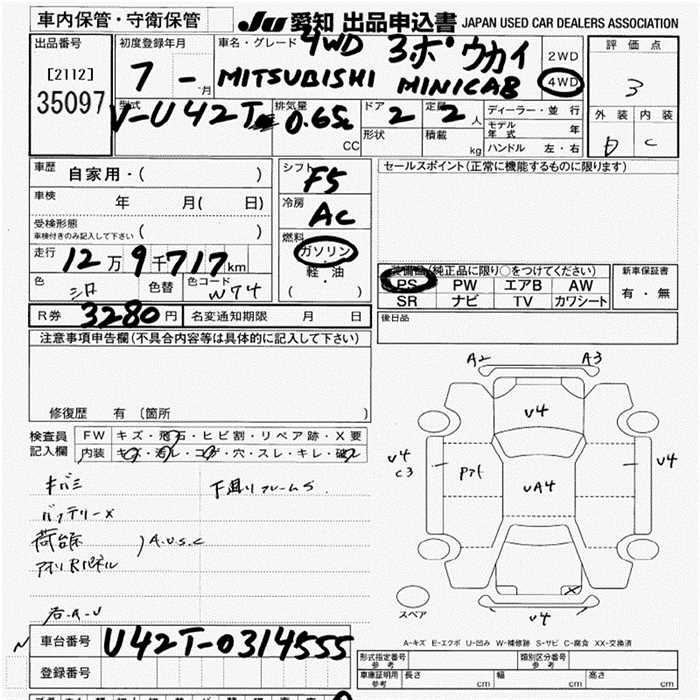 車内保管・守衛保管 JU 愛知 出品申込書 JAPAN USED CAR DEALERS ASSOCIATION
出品番号
[2112]
35097
初度登録年月
7 - 月
車名・グレード
4WD 3ホ゛ウカイ
MITSUBISHI MINICAB
2WD
4WD
評価点
3
外装 内装
C
型式
V-U42T
排気量
0.65
CC
ドア
2
定員
2 人
形状
積載
kg
ディーラー・並行
モデル年式 年
ハンドル 左・右
車歴
自家用・( )
車検
年 月( 日)
受検形態
車検付きのみ記入して下さい ( )
走行
12万9千717km
色
シロ
色替
色コード
W74
シフト
F5
冷房
AC
燃料
ガソリン
軽・油
( )
セールスポイント(正常に機能するものに限ります)
装備品(純正品に限り○をつけてください)
PS PW エアB AW
SR ナビ TV カワシート
新車保証書
有・無
後日品
R券 3280円 名変通知期限 月 日
注意事項申告欄(不具合内容等は具体的に記入して下さい)
修復歴 有 (箇所 )
検査員
記入欄
FW キズ・飛石・ヒビ割・リペア跡・X要
内装 キズ・汚レ・コゲ・穴・スレ・キレ・破レ
キバミ
下廻りフレームS
バッテリーX
荷台床
アオリRパネル
A.U.S.C
右-A-U
A2 A3
V4
V4
C3
Pアト
UA4
V4
V4
スペア
A-キズ E-エクボ U-凹み W-補修跡 S-サビ C-腐食 XX-交換済
車台番号 U42T-0314555
登録番号
形式指定番号
参考
類別区分番号
参考
車庫証明用
参考
長さ cm 幅 cm 高さ cm